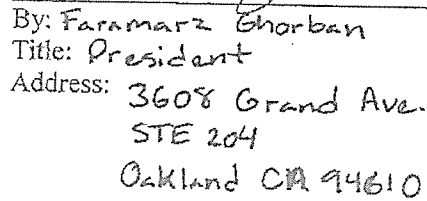 By: Faramarz Ghorban
Title: President
Address: 3608 Grand Ave.
STE 204
Oakland CA 94610